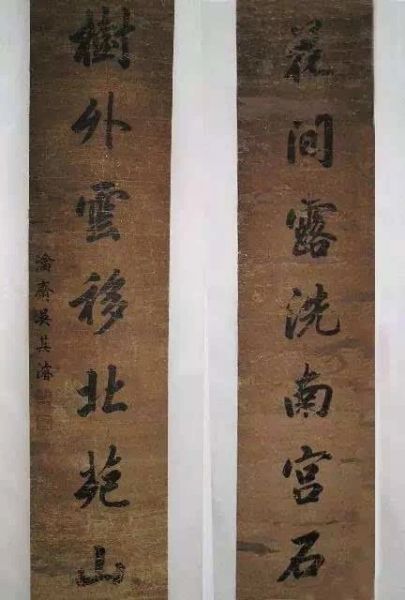 花间露洗南宫石
樹外雲移北苑山
瀹齋吳其濬